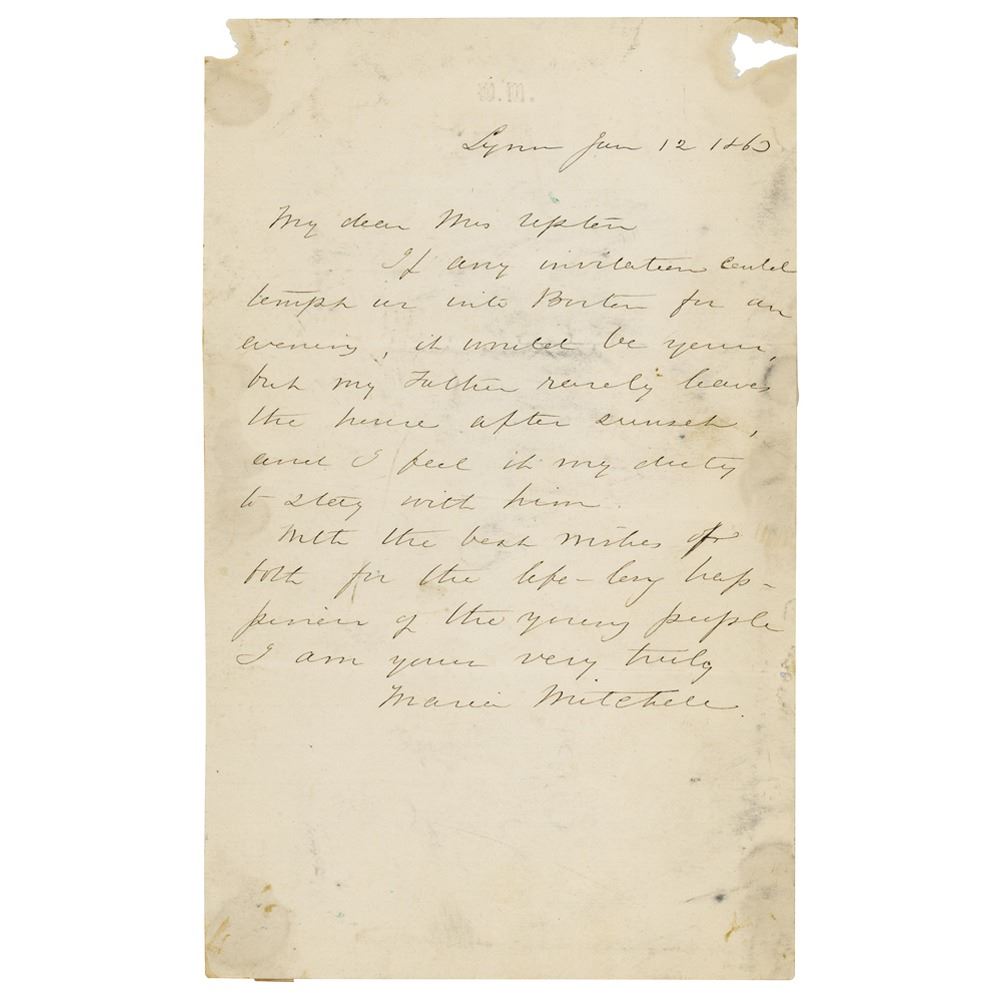 W.M.
Lynn Jan 12 1863
My dear Mrs Upton
If any invitation could
tempt us into Boston for an
evening, it would be yours,
but my Father rarely leaves
the house after sunset,
and I feel it my duty
to stay with him.
With the best wishes of
both for the life-long hap-
piness of the young people
I am yours very truly
Maria Mitchell.